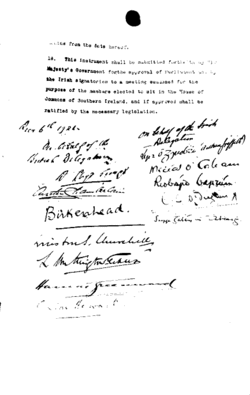 months from the date hereof.
18. This instrument shall be submitted forthwith by His
Majesty's Government for the approval of Parliament and by
the Irish signatories to a meeting summoned for the
purpose of the members elected to sit in the House of
Commons of Southern Ireland, and if approved shall be
ratified by the necessary legislation.
Dec 6th 1921.
On behalf of the
British Delegation
D Lloyd George
Austen Chamberlain
Birkenhead.
Winston S. Churchill
L Worthington-Evans
Hamar Greenwood
Gordon Hewart
On behalf of the Irish
Delegation
Art Ó Gríobhtha
Micheál Ó Coileáin
Riobárd Bartún